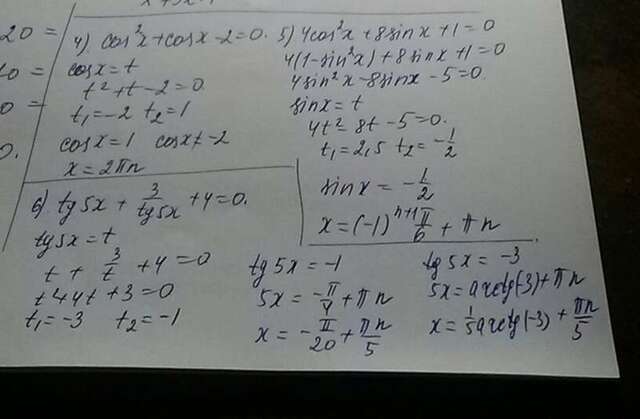 20 =
10 =
0 =
0.
4) cos²x + cosx - 2 = 0.
cosx = t
t² + t - 2 = 0
t₁ = -2 t₂ = 1
cosx = 1 cosx ≠ -2
x = 2πn
5) 4cos²x + 8sinx + 1 = 0
4(1 - sin²x) + 8sinx + 1 = 0
4sin²x - 8sinx - 5 = 0
sinx = t
4t² - 8t - 5 = 0.
t₁ = 2,5 t₂ = -1/2
sinx = -1/2
x = (-1)ⁿ⁺¹ π/6 + πn
6) tg5x + 3/tg5x + 4 = 0.
tg5x = t
t + 3/t + 4 = 0
t² + 4t + 3 = 0
t₁ = -3 t₂ = -1
tg5x = -1
5x = -π/4 + πn
x = -π/20 + πn/5
tg5x = -3
5x = arctg(-3) + πn
x = 1/5 arctg(-3) + πn/5